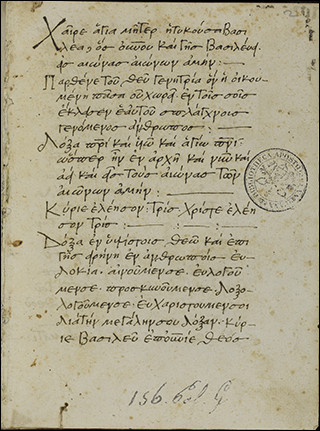 Χαῖρε ἁγία μῆτερ ἡ τηκοῦσα βασι
λέα, ὃς οὐνοῦ καὶ γῆς βασιλεύει
εἰς αἰῶνας αἰώνων ἀμήν:
Παρθένε τοῦ θεοῦ γενήτρια ὃν ἡ οἰκου
μένη πᾶσα οὐ χωρᾶ, ἐν τοῖς σοῖς
ἔκλησεν ἑαυτὸν σπλάγχνοις
γενόμενος ἄνθρωπος:
Δόξα πρὶ καὶ υἱῶ καὶ ἁγίω πνι
ὥσπερ ἦν ἐν ἀρχῆ καὶ νῦν καὶ
ἀεὶ καὶ εἰς τοὺς αἰῶνας τῶν
αἰώνων ἀμήν:
Κύριε ἐλέησον τρίς. Χριστὲ ἐλέη
σον τρίς:
Δόξα ἐν ὑψίστοις θεῶ καὶ ἐπὶ
γῆς εἰρήνη ἐν ἀνθρώποις εὐ
δοκία. αἰνοῦμεν σε. εὐλογοῦ
μεν σε. προσκυνοῦμεν σε. δοξο
λογοῦμεν σε. εὐχαριστοῦμεν σοι
διὰ τὴν μεγάλην σου δόξαν. Κύρ
ιε βασιλεῦ ἐπουνιε, θεὸς
156.